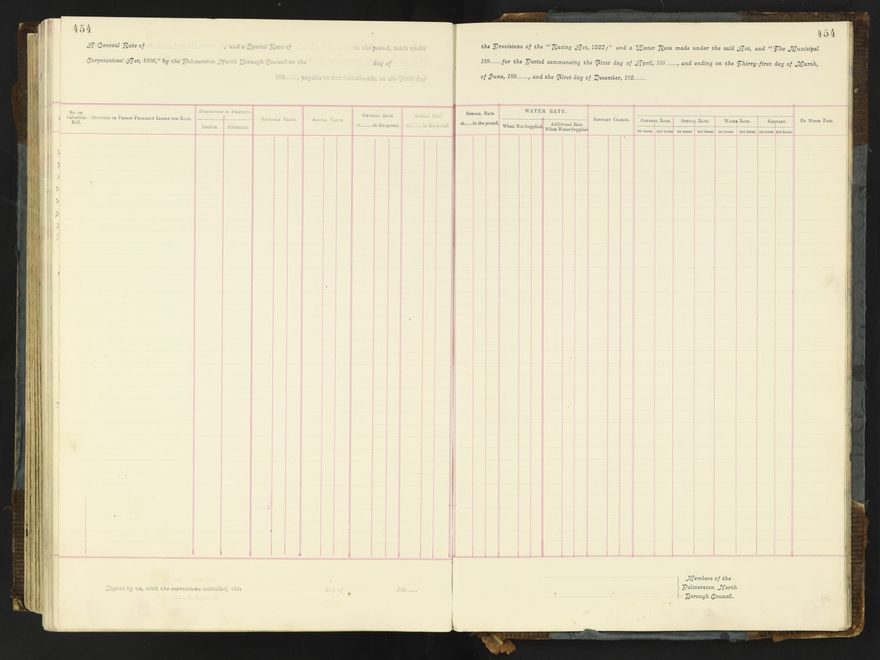 454
A General Rate of , and a Special Rate of in the pound, made under
Corporations' Act, 1886," by the Palmerston North Borough Council on the day of
189......, payable in two instalments, on the First day
No. on Valuation Roll.
Occupier or Person Primarily Liable for Rate.
Description of Property.
Section.
Allotment.
Rateable Value.
Annual Value.
General Rate
at.........in the pound.
Special Rate
at.........in the pound.
Signed by us, with the corrections initialled, this day of 189......
454
the Provisions of the "Rating Act, 1882;" and a Water Rate made under the said Act, and "The Municipal
189......for the Period commencing the First day of April, 189......, and ending on the Thirty-first day of March,
of June, 189......, and the First day of December, 189......
Special Rate
at.........in the pound.
WATER RATE.
When Not Supplied.
Additional Rate
When Water Supplied
Sanitary Charge.
General Rate.
1st Instmt. 2nd Instmt.
Special Rate.
1st Instmt. 2nd Instmt.
Water Rate.
1st Instmt. 2nd Instmt.
Sanitary.
1st Instmt. 2nd Instmt.
By Whom Paid.
Members of the
Palmerston North
Borough Council.